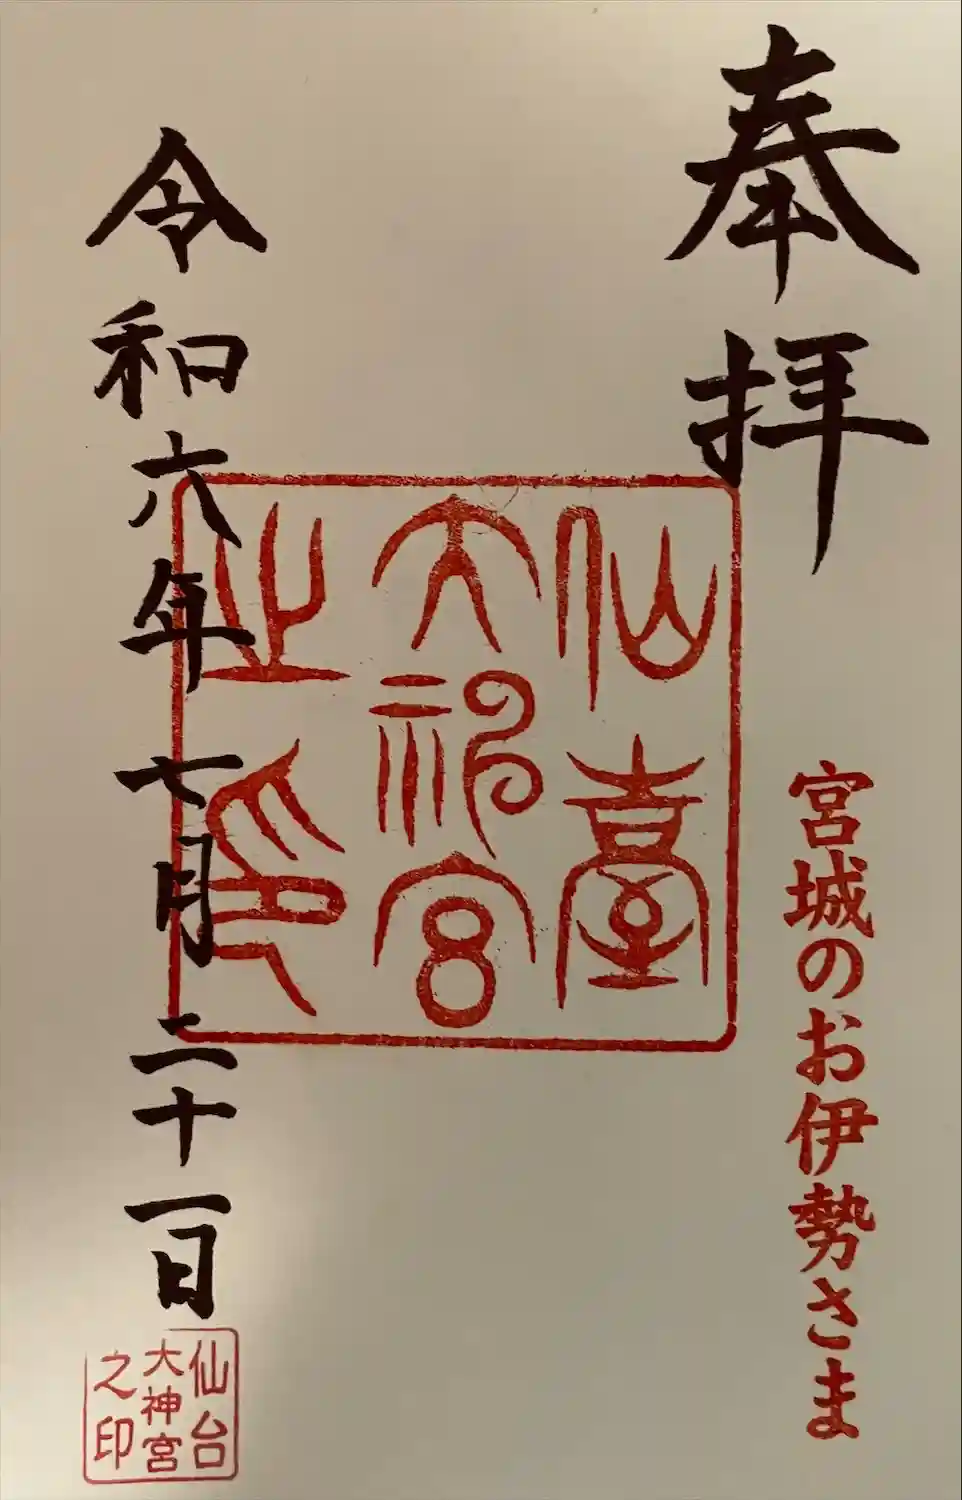 奉拝
宮城のお伊勢さま
仙臺
大神宮
之印
令和六年七月二十一日
仙台
大神宮
之印